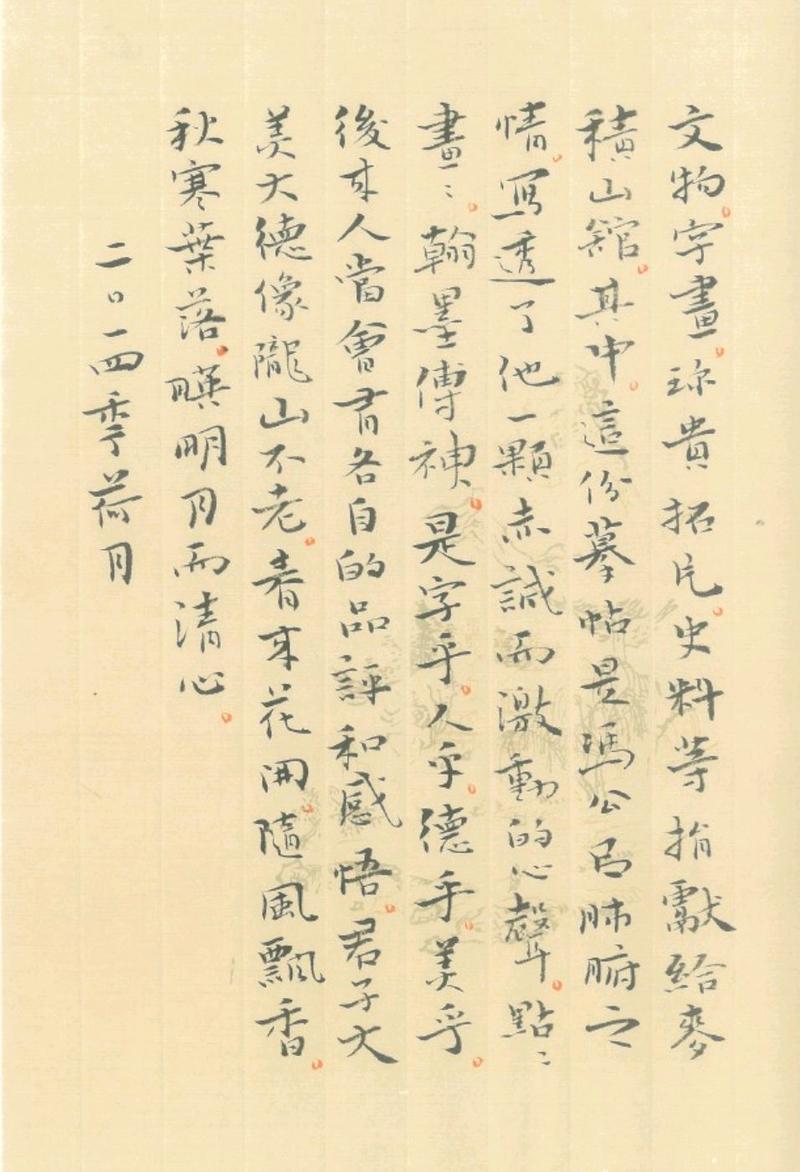 文物。字畫。珎貴拓片。史料等捐獻給麥
積山館。其中。這份摹帖是馮公以肺腑之
情。寫透了他一顆赤誠而激動的心聲。點〻
畫〻。翰墨傳神。是字乎。人乎。德乎。美乎。
後來人當會有各自的品評和感悟。君子大
美大德像隴山不老。春來花開。隨風飄香。
秋寒葉落。暎明月而清心。
二〇一四年荷月